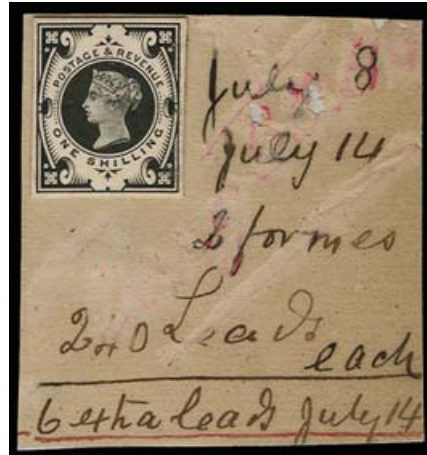 POSTAGE & REVENUE
ONE SHILLING
July 8
July 14
2 formes
240 Leads
each
6 extra leads July 14